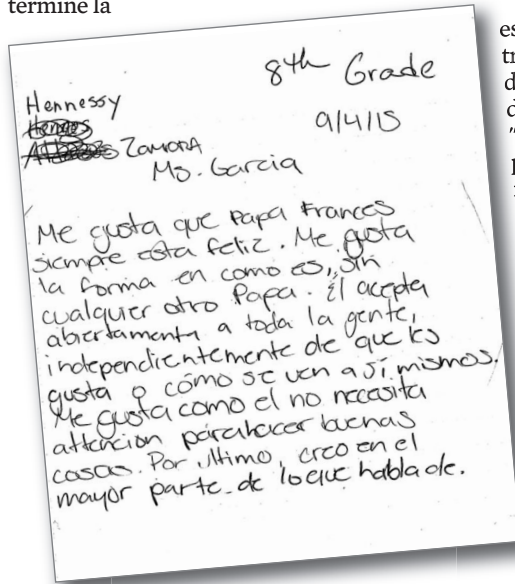 termine la
es
tr
d
d
"
8th Grade
Hennessy
9/4/15
Zamora
Ms. Garcia
Me gusta que Papa Frances
siempre esta feliz. Me gusta
la forma en como es, sin
cualquier otro Papa. Él acepta
abiertamente a toda la gente,
independientemente de que les
gusta o cómo se ven a sí mismos.
Me gusta como el no necesita
attencion para hacer buenas
cosas. Por ultimo, creo en el
mayor parte de lo que habla de.